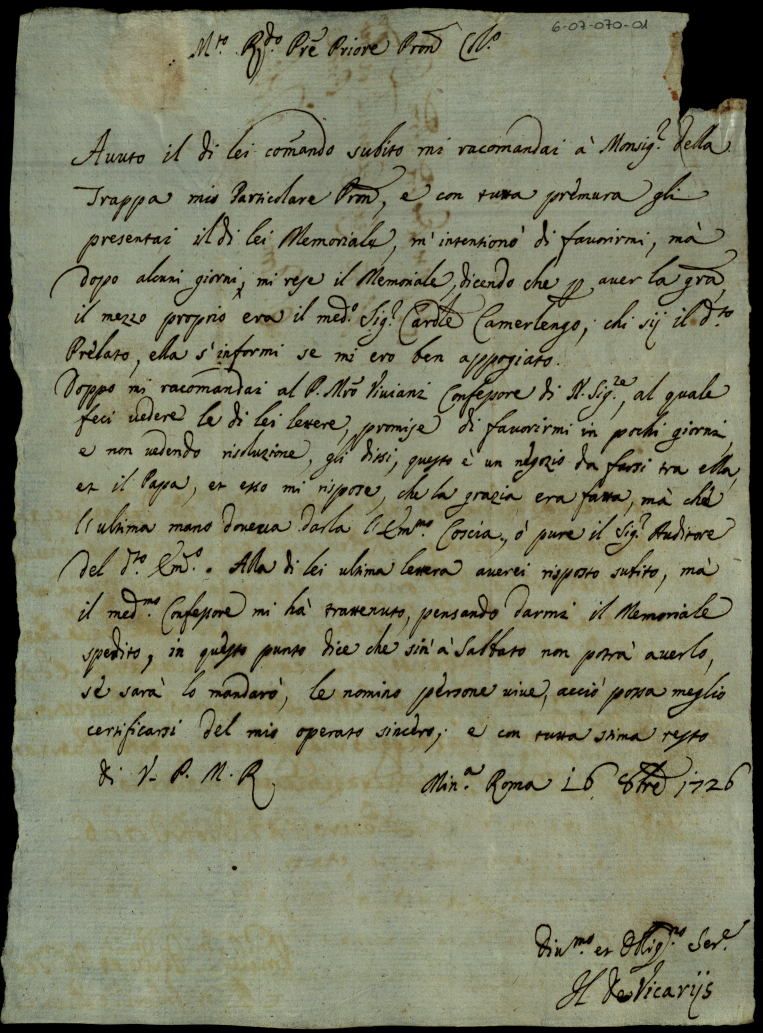 6-07-070-01
M.to R.do Prẽ Priore Pron̄ Col.o
Auuto il di lei com̄ando subito mi racomandai à Monsig.r della
Trappa mio Particolare Pron̄, e con tutta prèmura gli
presentai il di lei Memoriale, m'intentionò di fauorirmi, mà
dopo alcuni giorni, mi rese il Memoriale, dicendo che p auer la grã,
il mezzo proprio era il med.o Sig.r Cardle Camerlengo, chi sij il d.to
Prèlato, ella s'informi se mi ero ben appogiato.
Doppo mi racomandai al P. Mrõ Viuiani Confessore di N. Sig.re, al quale
feci uedere le di lei lettere, promise di fauorirmi in pochi giorni,
e non uedendo risoluzione, gli dissi, questo è un negozio da farsi tra ella,
et il Papa, et esso mi rispose, che la grazia era fatta, mà che
l'ultima mano doueua darla l'Em̃mo. Coscia, ò pure il Sig.r Auditore
del d.to Em̃.o. Alla di lei ultima lettera auerei risposto subito, mà
il med.mo Confessore mi hà trattenuto, pensando darmi il Memoriale
spedito, in questo punto dice che sin'à Sabbato non potrà auerlo,
sè sarà lo mandarò, le nomino pèrsone uiue, acciò possa meglio
certificarsi del mio operato sincèro, e con tutta stima resto
di V. P. M. R.
Min.a Roma 16 8bre 1726
Diu.mo et Oblig.mo Ser.e
H de Vicarijs